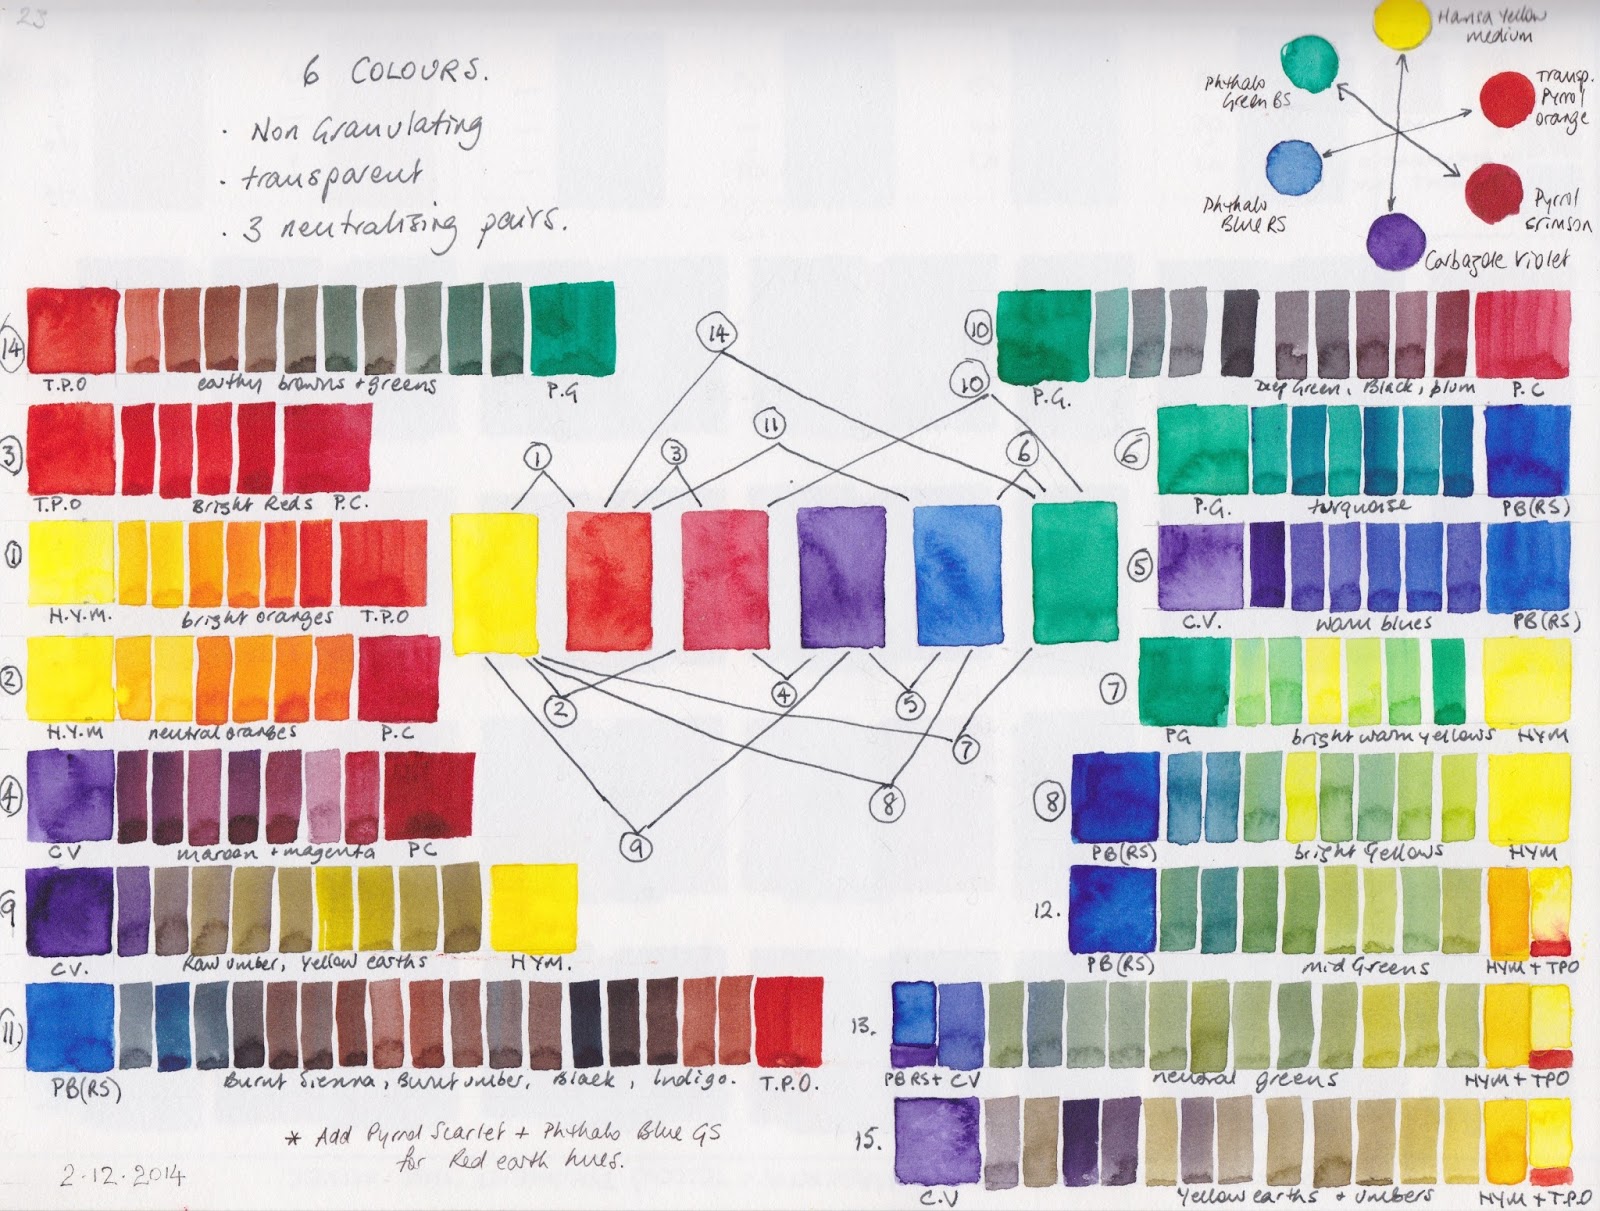 23
6 COLOURS.
· Non Granulating
· transparent
· 3 neutralising pairs.
Hansa Yellow
medium
Phthalo
Green BS
Transp.
Pyrrol
orange
Phthalo
Blue RS
Pyrrol
Crimson
Carbazole Violet
14
T.P.O
earthy browns + greens
P.G
3
T.P.O
Bright Reds
P.C.
1
H.Y.M.
bright oranges
T.P.O
2
H.Y.M
neutral oranges
P.C
4
CV
maroon + magenta
PC
9
CV.
Raw umber, Yellow earths
HYM.
11
PB(RS)
Burnt Sienna, Burnt umber, Black, Indigo.
T.P.O.
* Add Pyrrol Scarlet + Phthalo Blue GS
for Red earth hues.
2.12.2014
14
10
11
1
3
6
2
4
5
7
8
9
10
P.G.
Deep Green, Black, plum
P.C
6
P.G.
turquoise
PB(RS)
5
C.V.
warm blues
PB(RS)
7
PG
bright warm yellows
HYM
8
PB(RS)
bright Yellows
HYM
12.
PB(RS)
mid Greens
HYM + TPO
13.
PB RS + CV
neutral greens
HYM + TPO
15.
C.V
Yellow earths + umbers
HYM + T.P.O